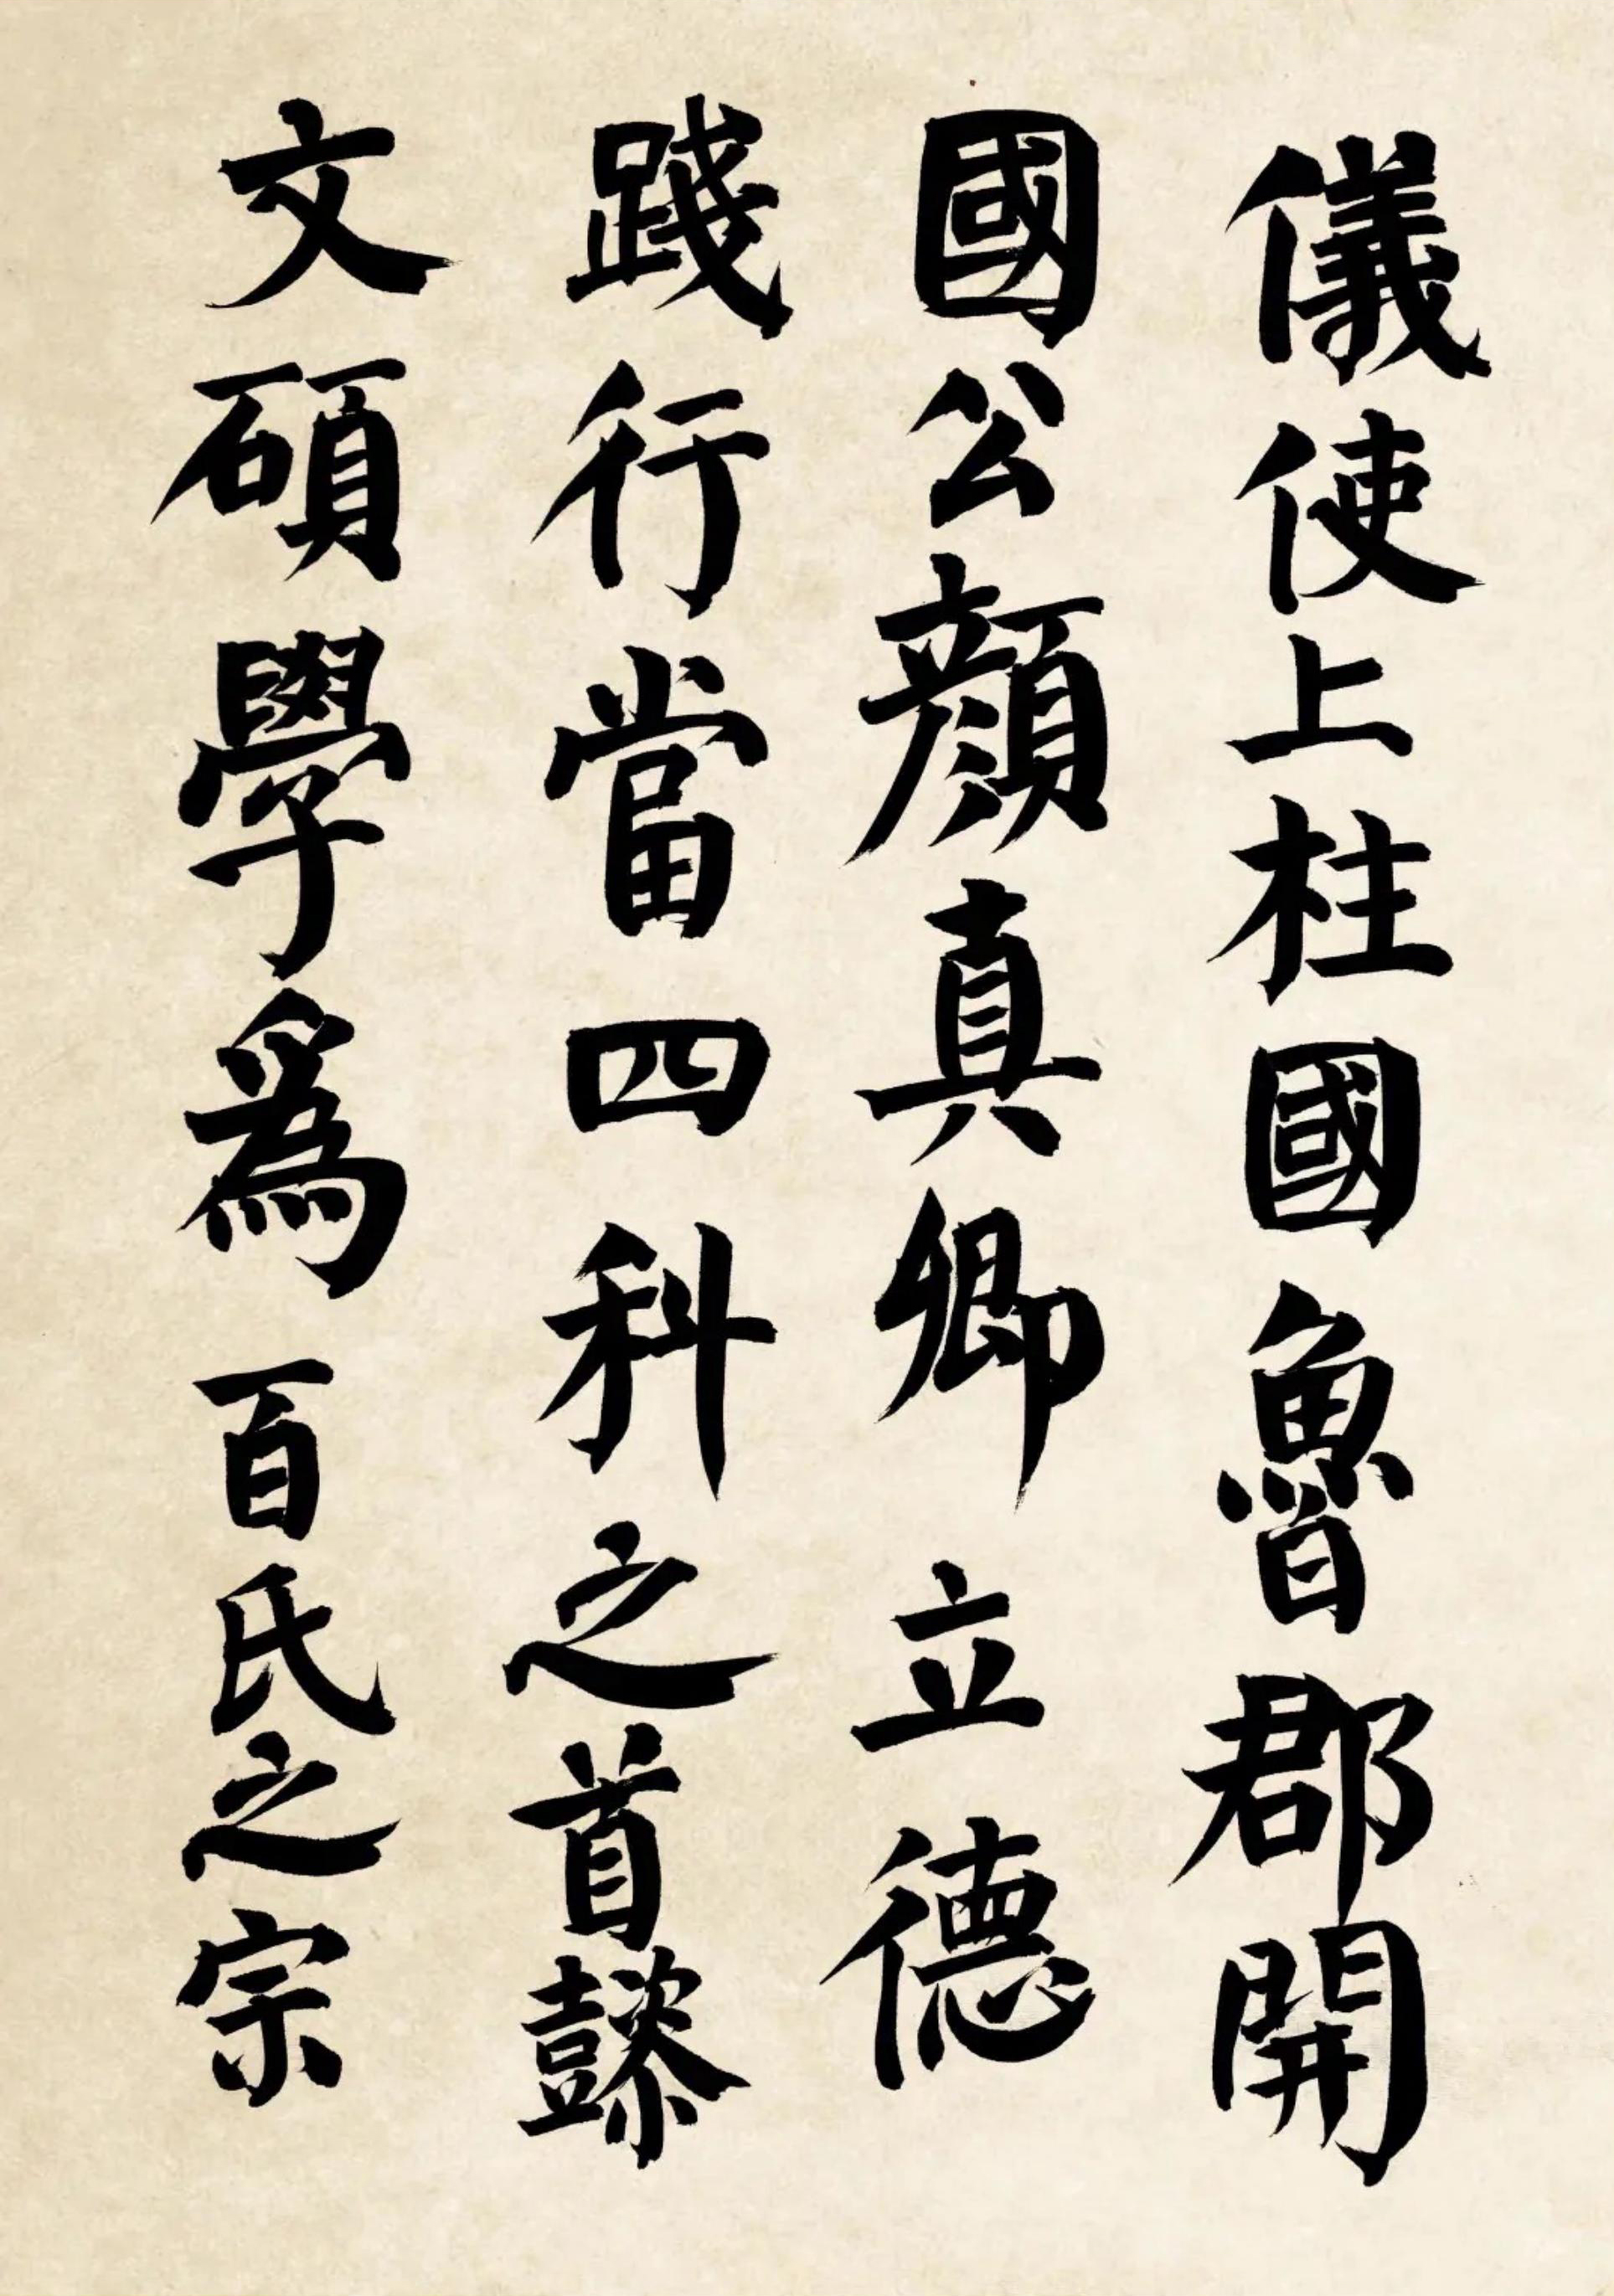 儀使上柱國魯郡開
國公顏真卿立德
踐行當四科之首懿
文碩學為百氏之宗